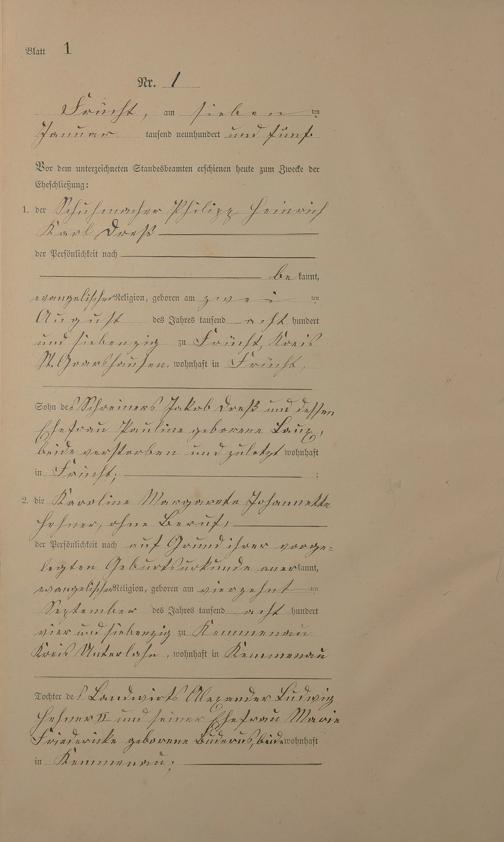 Blatt 1
Nr. 1
Frücht, am sieben ten
Januar tausend neunhundert und fünf
Vor dem unterzeichneten Standesbeamten erschienen heute zum Zwecke der
Eheschließung:
1. der Schuhmacher Philipp Heinrich
Karl Dreß
der Persönlichkeit nach
be kannt,
evangelischer Religion, geboren am zwei ten
August des Jahres tausend acht hundert
und siebenzig zu Frücht, Kreis
St. Goarshausen, wohnhaft in Frücht,
Sohn des Schreiners Jakob Dreß und dessen
Ehefrau Pauline geborene Laux,
beide verstorben und zuletzt wohnhaft
in Frücht;
2. die Karoline Margareta Johannette
Hehner, ohne Beruf,
der Persönlichkeit nach auf Grund ihrer vorge=
legten Geburtsurkunde aner kannt,
evangelischer Religion, geboren am vierzehnt en
September des Jahres tausend acht hundert
vier und siebenzig zu Kemmenau
Kreis Unterlahn, wohnhaft in Kemmenau
Tochter des Landwirts Alexander Ludwig
Hehner II und seiner Ehefrau Marie
Friedericke geborene Buderus, beide wohnhaft
in Kemmenau;